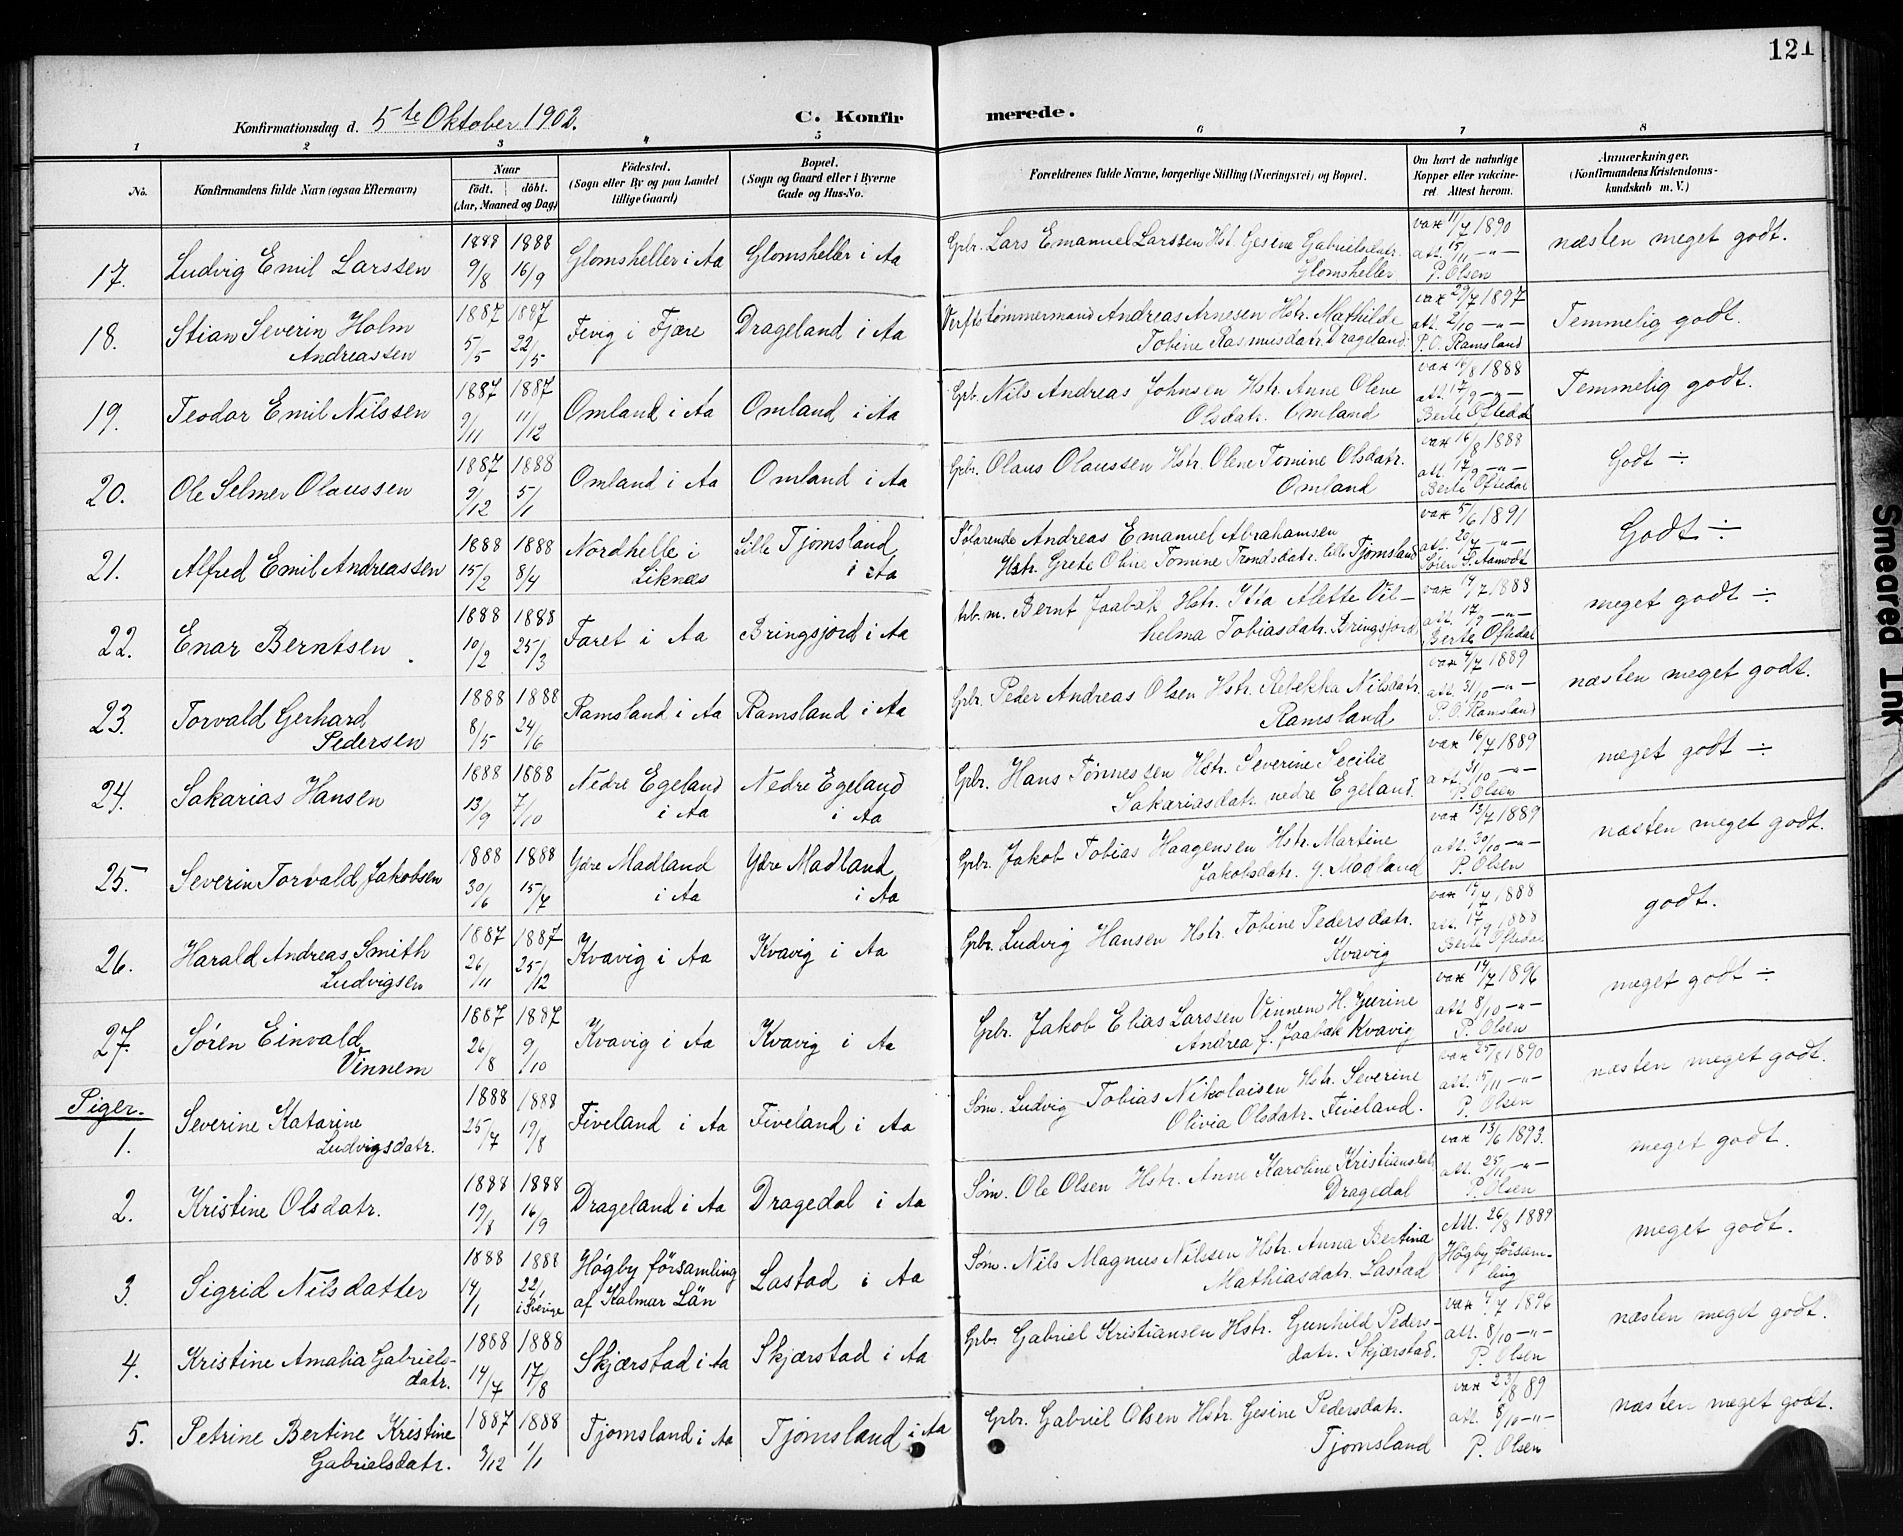 121
Konfirmationsdag d. 5te Oktober 1902.
C. Konfirmerede.
1 2 3 4 5 6 7 8
No.
Konfirmandens fulde Navn (ogsaa Efternavn)
Naar
födt. döbt.
(Aar, Maaned og Dag)
Födested.
(Sogn eller By og paa Landet
tillige Gaard)
Bopæl.
(Sogn og Gaard eller i Byerne
Gade og Hus-No.
Forældrenes fulde Navne, borgerlige Stilling (Næringsvei) og Bopæl.
Om havt de naturlige
Kopper eller vakcine-
ret Attest herom.
Anmærkninger.
(Konfirmandens Kristendoms-
kundskab m. V.)
17. Ludvig Emil Larssen 1888 9/8 1888 16/9 Glomsheller i Aa Glomsheller i Aa Gbr. Lars Emanuel Larssen Hst. Gesine Gabrielsdatr.
Glomsheller vax 11/7 1890 att. 15/11 -"- P. Olsen næsten meget godt.
18. Stian Severin Holm
Andreassen 1887 5/5 1887 22/5 Fevig i Fjære Drageland i Aa Verftstømmermand Andreas Arnesen Hstr. Mathilde
Tobine Rasmusdatr. Drageland. vax 29/7 1897 att. 2/10 -"- P. O. Ramsland Temmelig godt.
19. Teodor Emil Nilssen 1887 9/11 1887 11/12 Omland i Aa Omland i Aa Gbr. Nils Andreas Johnsen Hstr. Anne Olene
Olsdatr. Omland vax 16/8 1888 att. 17/9 -"- Berte Oftedal Temmelig godt.
20. Ole Selmer Olaussen 1887 9/12 1888 5/1 Omland i Aa Omland i Aa Gbr. Olaus Olaussen Hstr. Olene Tomine Olsdatr.
Omland vax 16/8 1888 att. 17/9 -"- Berte Oftedal Godt ÷
21. Alfred Emil Andreassen 1888 15/2 1888 8/4 Nordhelle i
Liknæs Lille Tjomsland
i Aa Søfarende Andreas Emanuel Abrahamsen
Hstr. Grete Oline Tomine Trondsdatr. lille Tjomsland vax 5/6 1891 att. 20/7 -"- Søren T. Aamodt Godt ÷
22. Enar Berntsen 1888 10/2 1888 25/3 Faret i Aa Bringsjord i Aa Arb.m. Bernt Faabæk Hstr. Itta Alette Vil-
helma Tobiasdatr. Bringsjord vax 14/7 1888 att. 17/9 -"- Berte Oftedal meget godt ÷
23. Torvald Gerhard
Pedersen 1888 8/5 1888 24/6 Ramsland i Aa Ramsland i Aa Gbr. Peder Andreas Olsen Hstr. Rebekka Nilsdatr.
Ramsland vax 4/7 1889 att. 31/10 -"- P. O. Ramsland næsten meget godt.
24. Sakarias Hansen 1888 13/9 1888 7/10 Nedre Egeland
i Aa Nedre Egeland
i Aa Gbr. Hans Tønnessen Hstr. Severine Secilie
Sakariasdatr. nedre Egeland. vax 16/7 1889 att. 31/10 -"- P. Olsen meget godt ÷
25. Severin Torvald Jakobsen 1888 30/6 1888 15/7 Ydre Madland
i Aa Ydre Madland
i Aa Gbr. Jakob Tobias Haagensen Hstr. Martine
Jakobsdatr. y. Madland vax 13/7 1889 att. 30/10 -"- P. Olsen næsten meget godt.
26. Harald Andreas Smith
Ludvigsen 1887 26/11 1887 25/12 Kvavig i Aa Kvavig i Aa Gbr. Ludvig Hansen Hstr. Tobine Pedersdatr.
Kvavig vax 14/7 1888 att. 17/9 1888 Berte Oftedal godt.
27. Søren Einvald
Vinnem 1887 26/8 1887 9/10 Kvavig i Aa Kvavig i Aa Gbr. Jakob Elias Larssen Vinnem H. Gurine
Andrea f. Faabæk Kvavig vax 14/7 1896 att 8/10 -"- P. Olsen meget godt ÷
Piger.
1. Severine Katarine
Ludvigsdatr. 1888 25/7 1888 19/8 Fiveland i Aa Fiveland i Aa Søm. Ludvig Tobias Nikolaisen Hstr. Severine
Olivia Olsdatr. Fiveland. vax 25/8 1890 att. 15/11 -"- P. Olsen næsten meget godt.
2. Kristine Olsdatr. 1888 19/8 1888 16/9 Drageland i Aa Dragedal i Aa Søm. Ole Olsen Hstr. Anne Karoline Kristiansdatr.
Dragedal vax 13/6 1893. att. 25/11 -"- P. Olsen meget godt.
3. Sigrid Nilsdatter 1888 14/1 1888 22/1 i Sverige Högby församling
af Kalmar Län Lastad i Aa Søm. Nils Magnus Nilssen Hstr. Anna Bertina
Mathiasdatr. Lastad Att. 26/8 1889 Högby försam-
ling meget godt.
4. Kristine Amalia Gabriels-
datr. 1888 14/7 1888 17/8 Skjærstad i Aa Skjærstad i Aa Gbr. Gabriel Kristiansen Hstr. Gunhild Peders-
datr. Skjærstad. vax 4/7 1896 att. 8/10 -"- P. Olsen næsten meget godt.
5. Petrine Bertine Kristine
Gabrielsdatr. 1887 3/12 1888 1/1 Tjomsland i Aa Tjomsland i Aa Gbr. Gabriel Olsen Hstr. Gesine Pedersdatr.
Tjomsland vax 23/8 89 att. 8/10 -"- P. Olsen næsten meget godt.
Smeared Ink